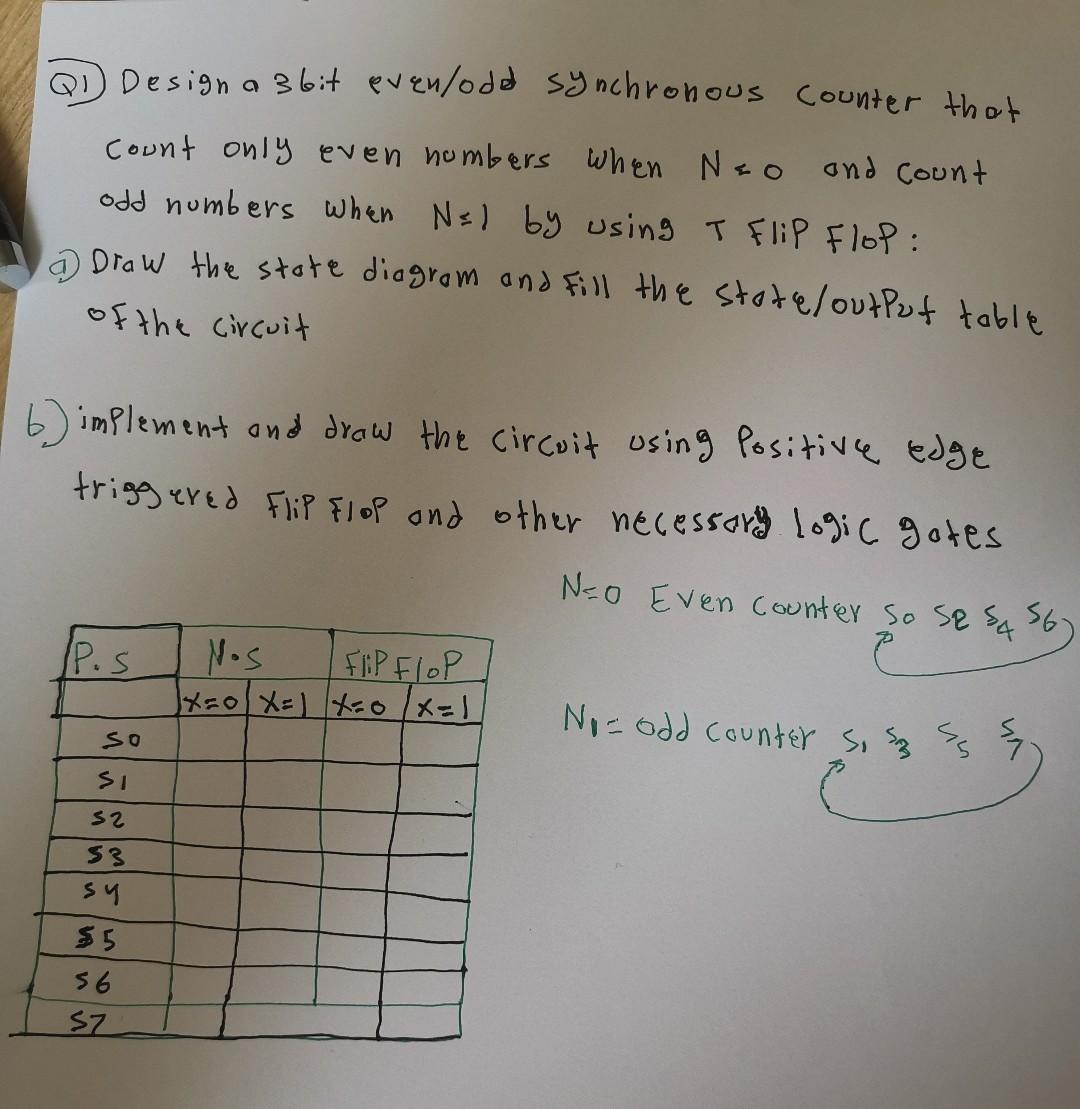 Q1) Design a 3bit even/odd synchronous counter that
count only even numbers when N=0 and count
odd numbers when N=1 by using T Flip Flop:
a) Draw the state diagram and Fill the state/output table
of the circuit
b) implement and draw the circuit using Positive edge
triggered Flip Flop and other necessary logic gates
N=0 Even counter S0 S2 S4 S6
N1= odd counter S1 S3 S5 S7
P.S N.S Flip Flop
X=0 X=1 X=0 X=1
S0
S1
S2
S3
S4
S5
S6
S7